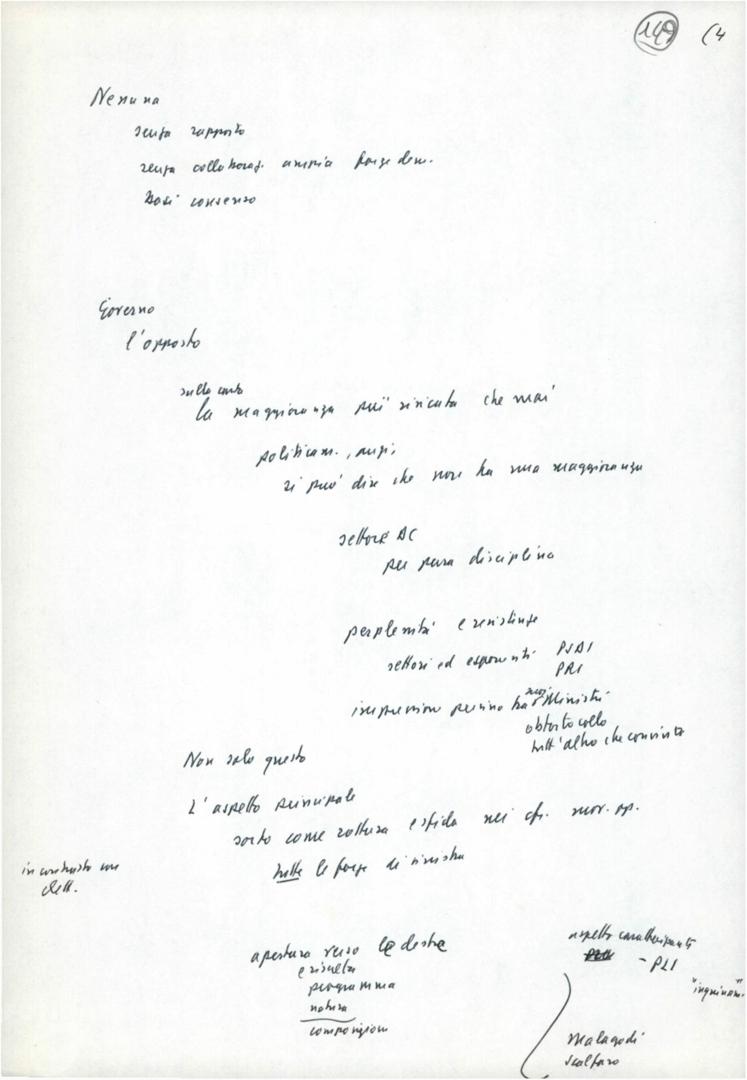 149 (4
Nessuna
senza rapporto
senza collaboraz. ampia forze dem.
Basi consenso
Governo
l'opposto
sulla carta
la maggioranza più risicata che mai
politicam., anzi,
si può dire che non ha una maggioranza
settore DC
per pura disciplina
perplessità e resistenze
settori ed esponenti PSDI
PRI
impressione persino tra suoi Ministri
obtorto collo
tutt'altro che convinti
Non solo questo
L'aspetto principale
sorto come rottura e sfida nei cfr. mov. op.
tutte le forze di sinistra
in contrasto con
elett.
apertura verso la destra
e risulta
programma
natura
composizione
aspetto caratterizzante
- PLI
"inquinam."
Malagodi
Scalfaro